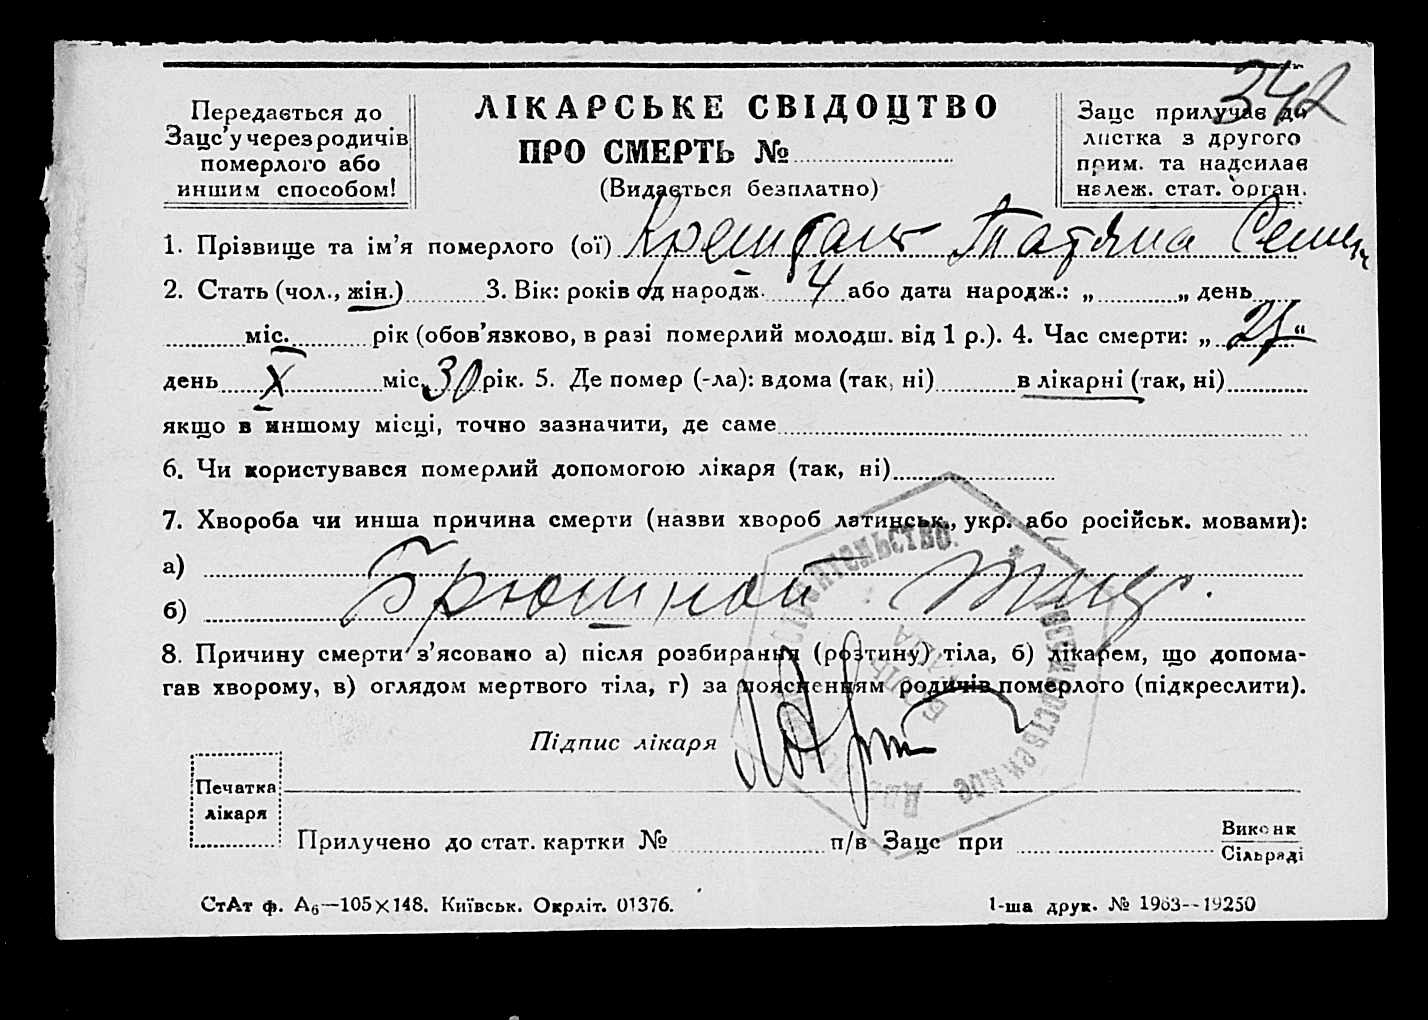 342
Передається до
Зацс'у через родичів
померлого або
иншим способом!
ЛІКАРСЬКЕ СВІДОЦТВО
ПРО СМЕРТЬ №
(Видається безплатно)
Зацс прилучає до
листка з другого
прим. та надсилає
належ. стат. орган.
1. Прізвище та ім'я померлого (ої) Татяна
2. Стать (чол., жін.) 3. Вік: років од народж. 4 або дата народж.: „ „ день
міс. рік (обов'язково, в разі померлий молодш. від 1 р.). 4. Час смерти: „ 27 “
день X міс. 30 рік. 5. Де помер (-ла): вдома (так, ні) в лікарні (так, ні)
якщо в иншому місці, точно зазначити, де саме
6. Чи користувався померлий допомогою лікаря (так, ні)
7. Хвороба чи инша причина смерти (назви хвороб латинськ., укр. або російськ. мовами):
а)
б) Брюшной тиф.
8. Причину смерти з'ясовано а) після розбирання (розтину) тіла, б) лікарем, що допома-
гав хворому, в) оглядом мертвого тіла, г) за поясненням родичів померлого (підкреслити).
Підпис лікаря
Печатка
лікаря
Прилучено до стат. картки № п/в Зацс при Виконк
Сільраді
СтАт ф. А6—105×148. Київськ. Окрліт. 01376.
1-ша друк. № 1963--19250